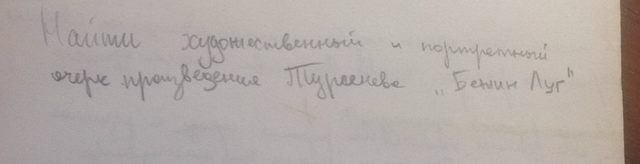 Найти художественный и портретный
очерк произведения Тургенева „Бежин Луг"